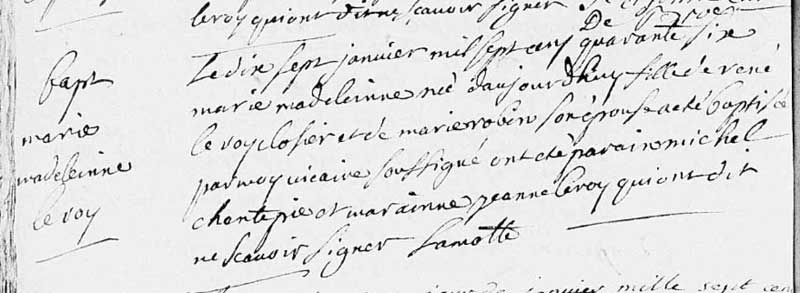 le roy qui ont dit ne scavoir signer
Bapt
marie
madeleinne
le roy
Le dix sept janvier mil sept cens quarante six
marie madeleinne née d'aujourdhuy fille de rené
le roy closier et de marie robin son épouse a été baptisée
par moy vicaire soussigné ont été parain michel
chantepie et marainne jeanne le roy qui ont dit
ne scavoir signer Lamotte
janvier mille sept cen